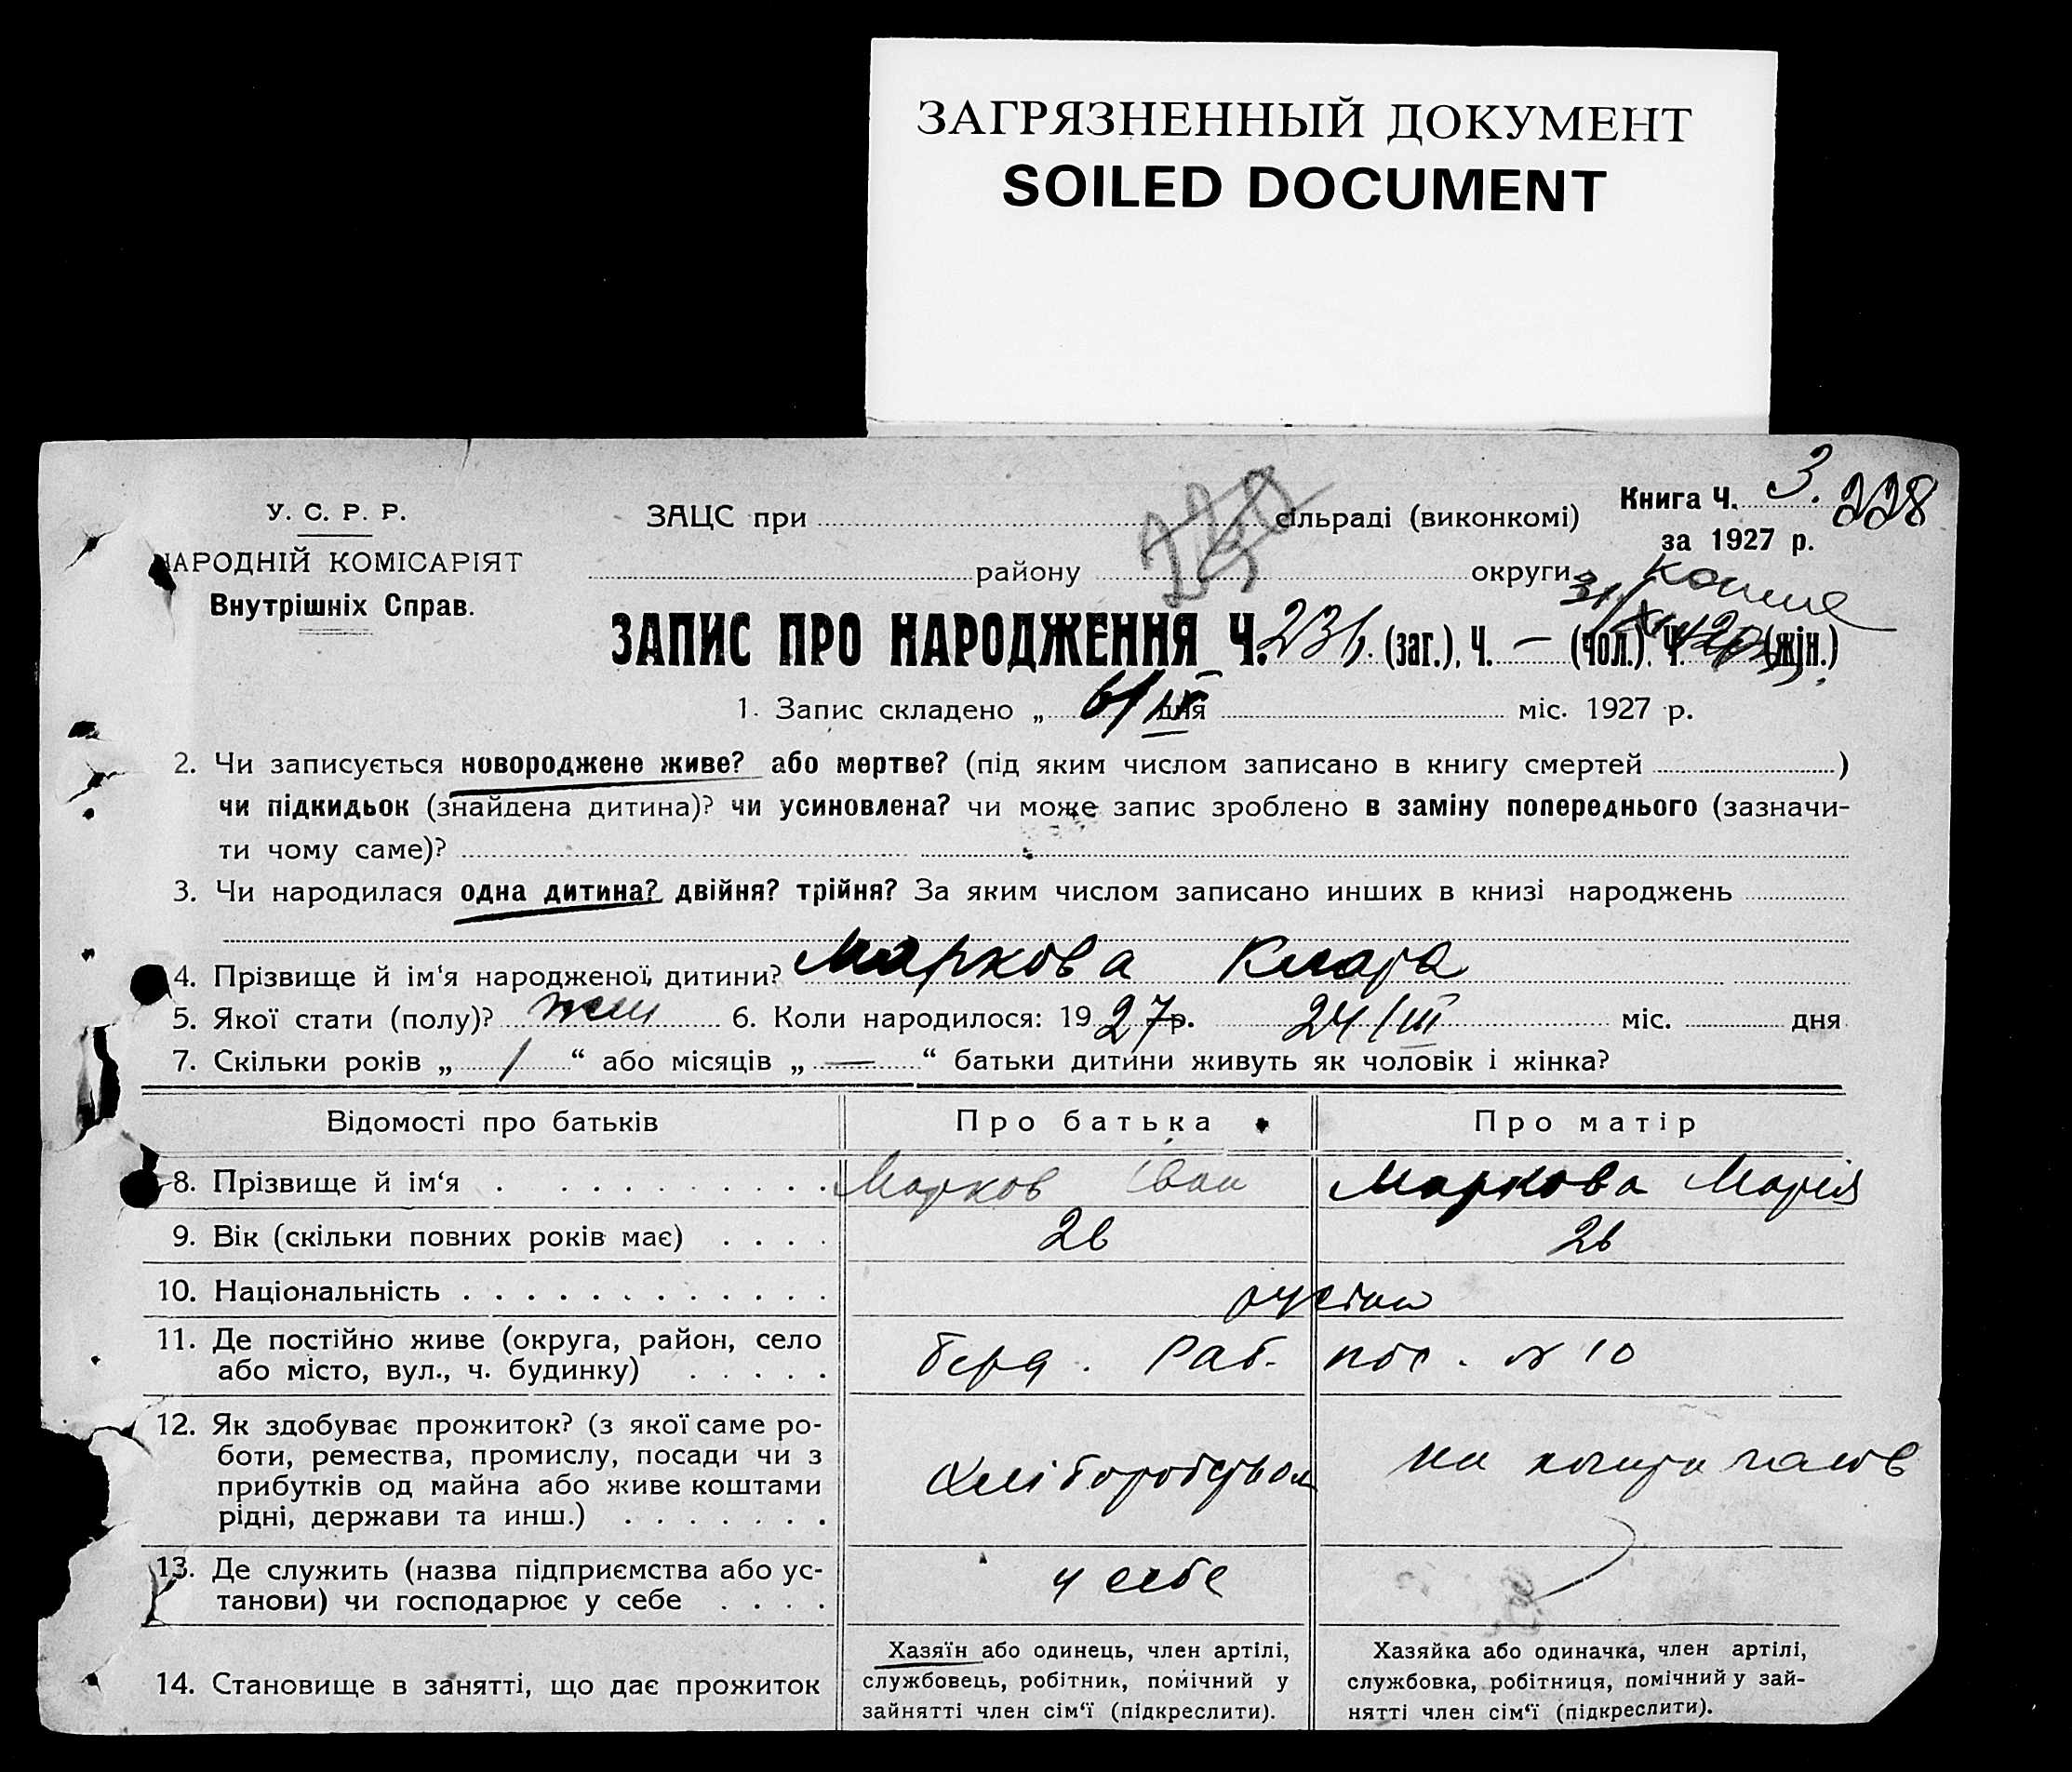 ЗАГРЯЗНЕННЫЙ ДОКУМЕНТ
SOILED DOCUMENT
У. С. Р. Р.
НАРОДНІЙ КОМІСАРІЯТ
Внутрішніх Справ.
ЗАЦС при сільраді (виконкомі)
Книга Ч. 3. 228
за 1927 р.
району округи
ЗАПИС ПРО НАРОДЖЕННЯ Ч. 236. (заг.). Ч. — (чол.). Ч. (жін.)
1. Запис складено „ 6/IV дня міс. 1927 р.
2. Чи записується новороджене живе? або мертве? (під яким числом записано в книгу смертей )
чи підкидьок (знайдена дитина)? чи усиновлена? чи може запис зроблено в заміну попереднього (зазначи-
ти чому саме)?
3. Чи народилася одна дитина? двійня? трійня? За яким числом записано инших в книзі народжень
4. Прізвище й ім‘я народженої дитини? Маркова Клара
5. Якої стати (полу)? жін 6. Коли народилося: 1927 р. 24/III міс. дня
7. Скільки років „ 1 “ або місяців „ — “ батьки дитини живуть як чоловік і жінка?
Відомості про батьків Про батька Про матір
8. Прізвище й ім‘я Марков Іван Маркова Марія
9. Вік (скільки повних років має) 26 26
10. Національність
11. Де постійно живе (округа, район, село
або місто, вул., ч. будинку) Берд. Раб. пос. № 10
12. Як здобуває прожиток? (з якої саме ро-
боти, ремества, промислу, посади чи з
прибутків од майна або живе коштами
рідні, держави та инш.) Хліборобством
13. Де служить (назва підприємства або ус-
танови) чи господарює у себе у себе
14. Становище в занятті, що дає прожиток
Хазяїн або одинець, член артілі,
службовець, робітник, помічний у
зайнятті член сім‘ї (підкреслити).
Хазяйка або одиначка, член артілі,
службовка, робітниця, помічний у зай-
нятті член сім‘ї (підкреслити).